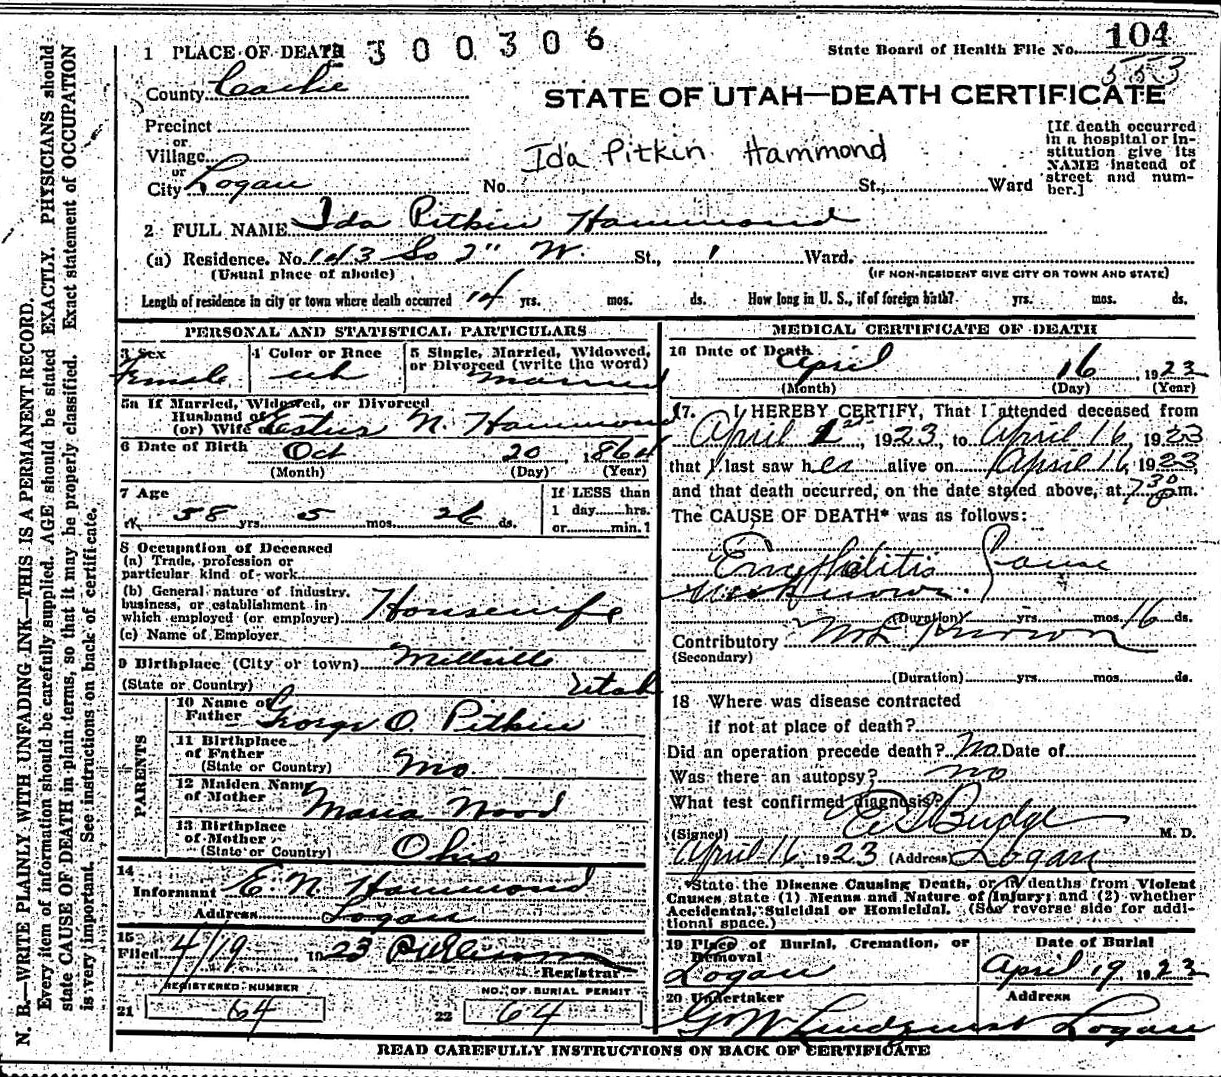 1 PLACE OF DEATH 300306
State Board of Health File No. 104
553
County Cache
STATE OF UTAH—DEATH CERTIFICATE
Precinct
or
Village
or
City Logan No. St., Ward
Ida Pitkin Hammond
[If death occurred in a hospital or institution give its NAME instead of street and number.]
2 FULL NAME Ida Pitkin Hammond
(a) Residence. No. 143 So 2" W. St., 1 Ward.
(Usual place of abode) (IF NON-RESIDENT GIVE CITY OR TOWN AND STATE)
Length of residence in city or town where death occurred 14 yrs. mos. ds. How long in U. S., if of foreign birth? yrs. mos. ds.
PERSONAL AND STATISTICAL PARTICULARS
3 Sex Female
4 Color or Race wh
5 Single, Married, Widowed, or Divorced (write the word) married
5a If Married, Widowed, or Divorced
Husband of
(or) Wife of N. Hammond
6 Date of Birth Oct 20 1864
(Month) (Day) (Year)
7 Age 58 yrs. 5 mos. 26 ds.
If LESS than 1 day hrs. or min.?
8 Occupation of Deceased
(a) Trade, profession or particular kind of work
(b) General nature of industry, business, or establishment in which employed (or employer) Housewife
(c) Name of Employer
9 Birthplace (City or town) Millville
(State or Country) Utah
PARENTS
10 Name of Father George O. Pitkin
11 Birthplace of Father (State or Country) Mo.
12 Maiden Name of Mother Maria Wood
13 Birthplace of Mother (State or Country) Ohio
14
Informant E. N. Hammond
Address Logan
15
Filed 4/19, 1923
Registrar
REGISTERED NUMBER
21 64
NO. OF BURIAL PERMIT
22 64
MEDICAL CERTIFICATE OF DEATH
16 Date of Death April 16 1923
(Month) (Day) (Year)
17. I HEREBY CERTIFY, That I attended deceased from
April, 1923, to April 16, 1923
that I last saw her alive on April 16, 1923,
and that death occurred, on the date stated above, at 7 30 p m.
The CAUSE OF DEATH* was as follows:
Encephalitis Cause
Not Known.
(Duration) yrs. mos. 16 ds.
Contributory Not Known
(Secondary)
(Duration) yrs. mos. ds.
18 Where was disease contracted
if not at place of death?
Did an operation precede death? No Date of
Was there an autopsy? no
What test confirmed diagnosis?
(Signed) Budge M. D.
April 16 1923 (Address) Logan
*State the Disease Causing Death, or in deaths from Violent Causes, state (1) Means and Nature of Injury; and (2) whether Accidental, Suicidal or Homicidal. (See reverse side for additional space.)
19 Place of Burial, Cremation, or Removal Logan
Date of Burial April 19 1923
20 Undertaker G W Lindquist
Address Logan
READ CAREFULLY INSTRUCTIONS ON BACK OF CERTIFICATE
N. B.—WRITE PLAINLY WITH UNFADING INK—THIS IS A PERMANENT RECORD.
Every item of information should be carefully supplied. AGE should be stated EXACTLY. PHYSICIANS should
state CAUSE OF DEATH in plain terms, so that it may be properly classified. Exact statement of OCCUPATION
is very important. See instructions on back of certificate.